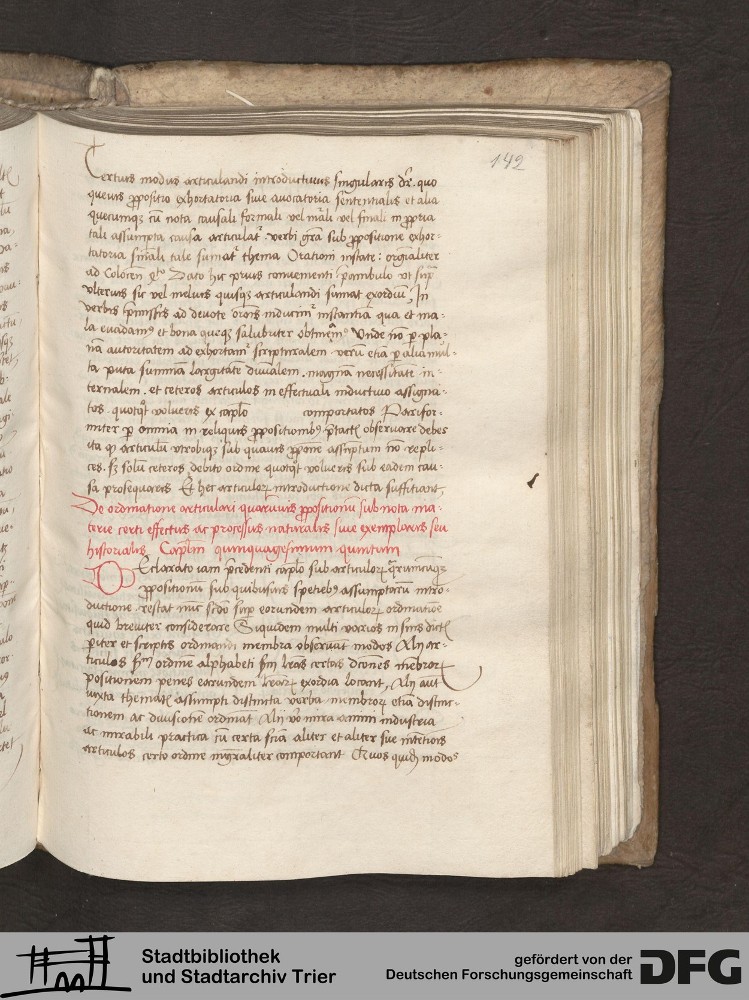 142
Tertius modus articulandi introductiuus singularis dr̄. quo
queuis ꝓpositio exhortatoria siue auocatoria sentencialis et alia
quecumqꝫ cū nota causali formali vel māli vel finali in ꝓpria
tali assumpta causa articulatᷣ. verbi grā sub ꝓpositione exhor-
tatoria finali tale sumatᷣ thema Orationi instate: originaliter
ad Colocen̄ Dato hic prius conuenienti p̄ambulo vt sup̄
vlterius sic vel melius quisqꝫ articulandi sumat exordiū, In
verbis p̄missis ad deuote orōis inducimᷣ instantiā qua et ma-
la euadamꝰ et bona queqꝫ salubriter obtineamꝰ Unde nō ꝑ pla-
nā autoritatem ad exhortam̄ scripturalem verū etiā ꝑ alia mul-
ta puta summā largitatē diuinalem. magnā necessitatē in-
ternalem. et ceteros articulos in effectuali inductiuo assigna-
tos. quotqͦt volueris ex caplo comportatos Parifor-
miter ꝑ omnia in reliquis ꝓpositionibꝫ p̄tactis obseruare debes
ita ꝙ articulū vtrobiqꝫ sub quauis ꝓpōne assūptum nō repli-
ces. sꝫ solū ceteros debito ordine quotqͦt volueris sub eadem cau-
sa prosequaris Et hec articuloꝝ introductione dicta suffitiant
De ordinatione articulari quaruuis ꝓpositionū sub nota ma-
terie certi effectus ac processus naturalis siue exemplaris seu
historialis Caplm̄ quinquagesimum quintum
DEclarato iam p̄cedenti caplo sub articuloꝝ quarumcūqꝫ
ꝓpositionum sub quibusuis spetiebꝫ assumptaru intro-
ductione restat nūc scd̄o sup̄ eorundem articuloꝝ ordinatiōe
quid breuiter considerare Siquidem multi varios in suis dictis
pariter et scriptis ordinandi membra obseruāt modos Alij ar-
ticulos scd̄m ordinē alphabeti scd̄m lrās certas dc̄ones mēbroꝝ
positionem penes earundem lraꝝ exordia locant, Alij aut
iuxta thematis assumpti distincta verba membroꝝ etiā distinc-
tionem ac diuisionē ordināt Alij vͦo mira animi industria
ac mirabili practica cū certa sciā aliter et aliter sue intētiōis
articulos certo ordine integraliter comportant Quos quidē modos
Stadtbibliothek
und Stadtarchiv Trier
gefördert von der
Deutschen Forschungsgemeinschaft
DFG